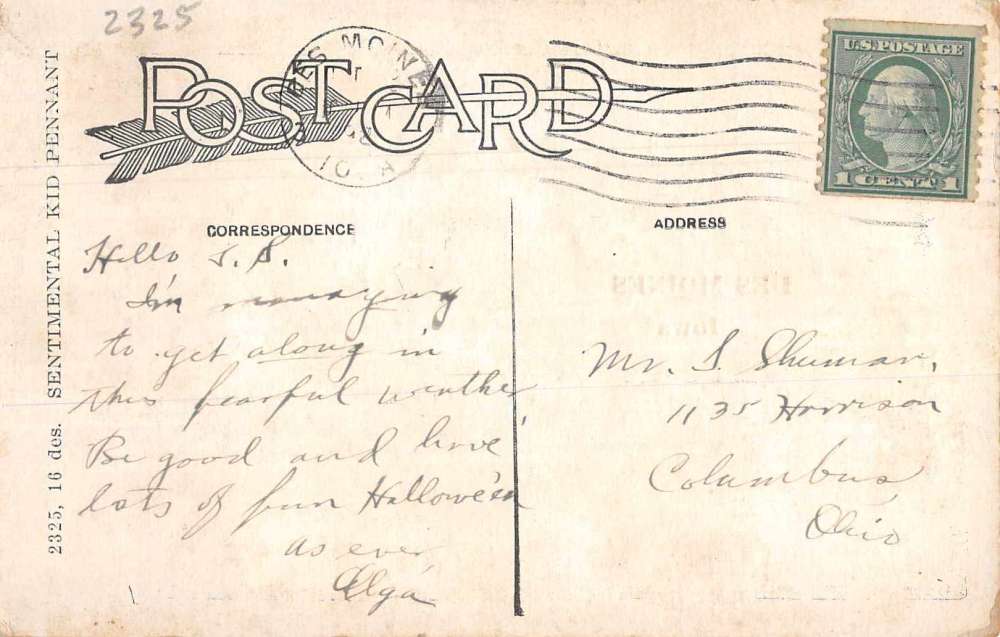 2325
2325, 16 des. SENTIMENTAL KID PENNANT
POST CARD
DES MOINES
IOWA
U.S. POSTAGE
1 CENT 1
CORRESPONDENCE
ADDRESS
Hello S. S.
I'm managing
to get along in
this fearful weather
Be good and have
lots of fun Hallowe'en
as ever
Olga
Mr. S. Shuman,
1135 Harrison
Columbus,
Ohio
DES MOINES
Iowa